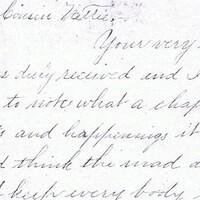 Cousin Hattie,
Your very
s duly received and I
to note what a chap
s and happenings it
d think the mad a
keep every body